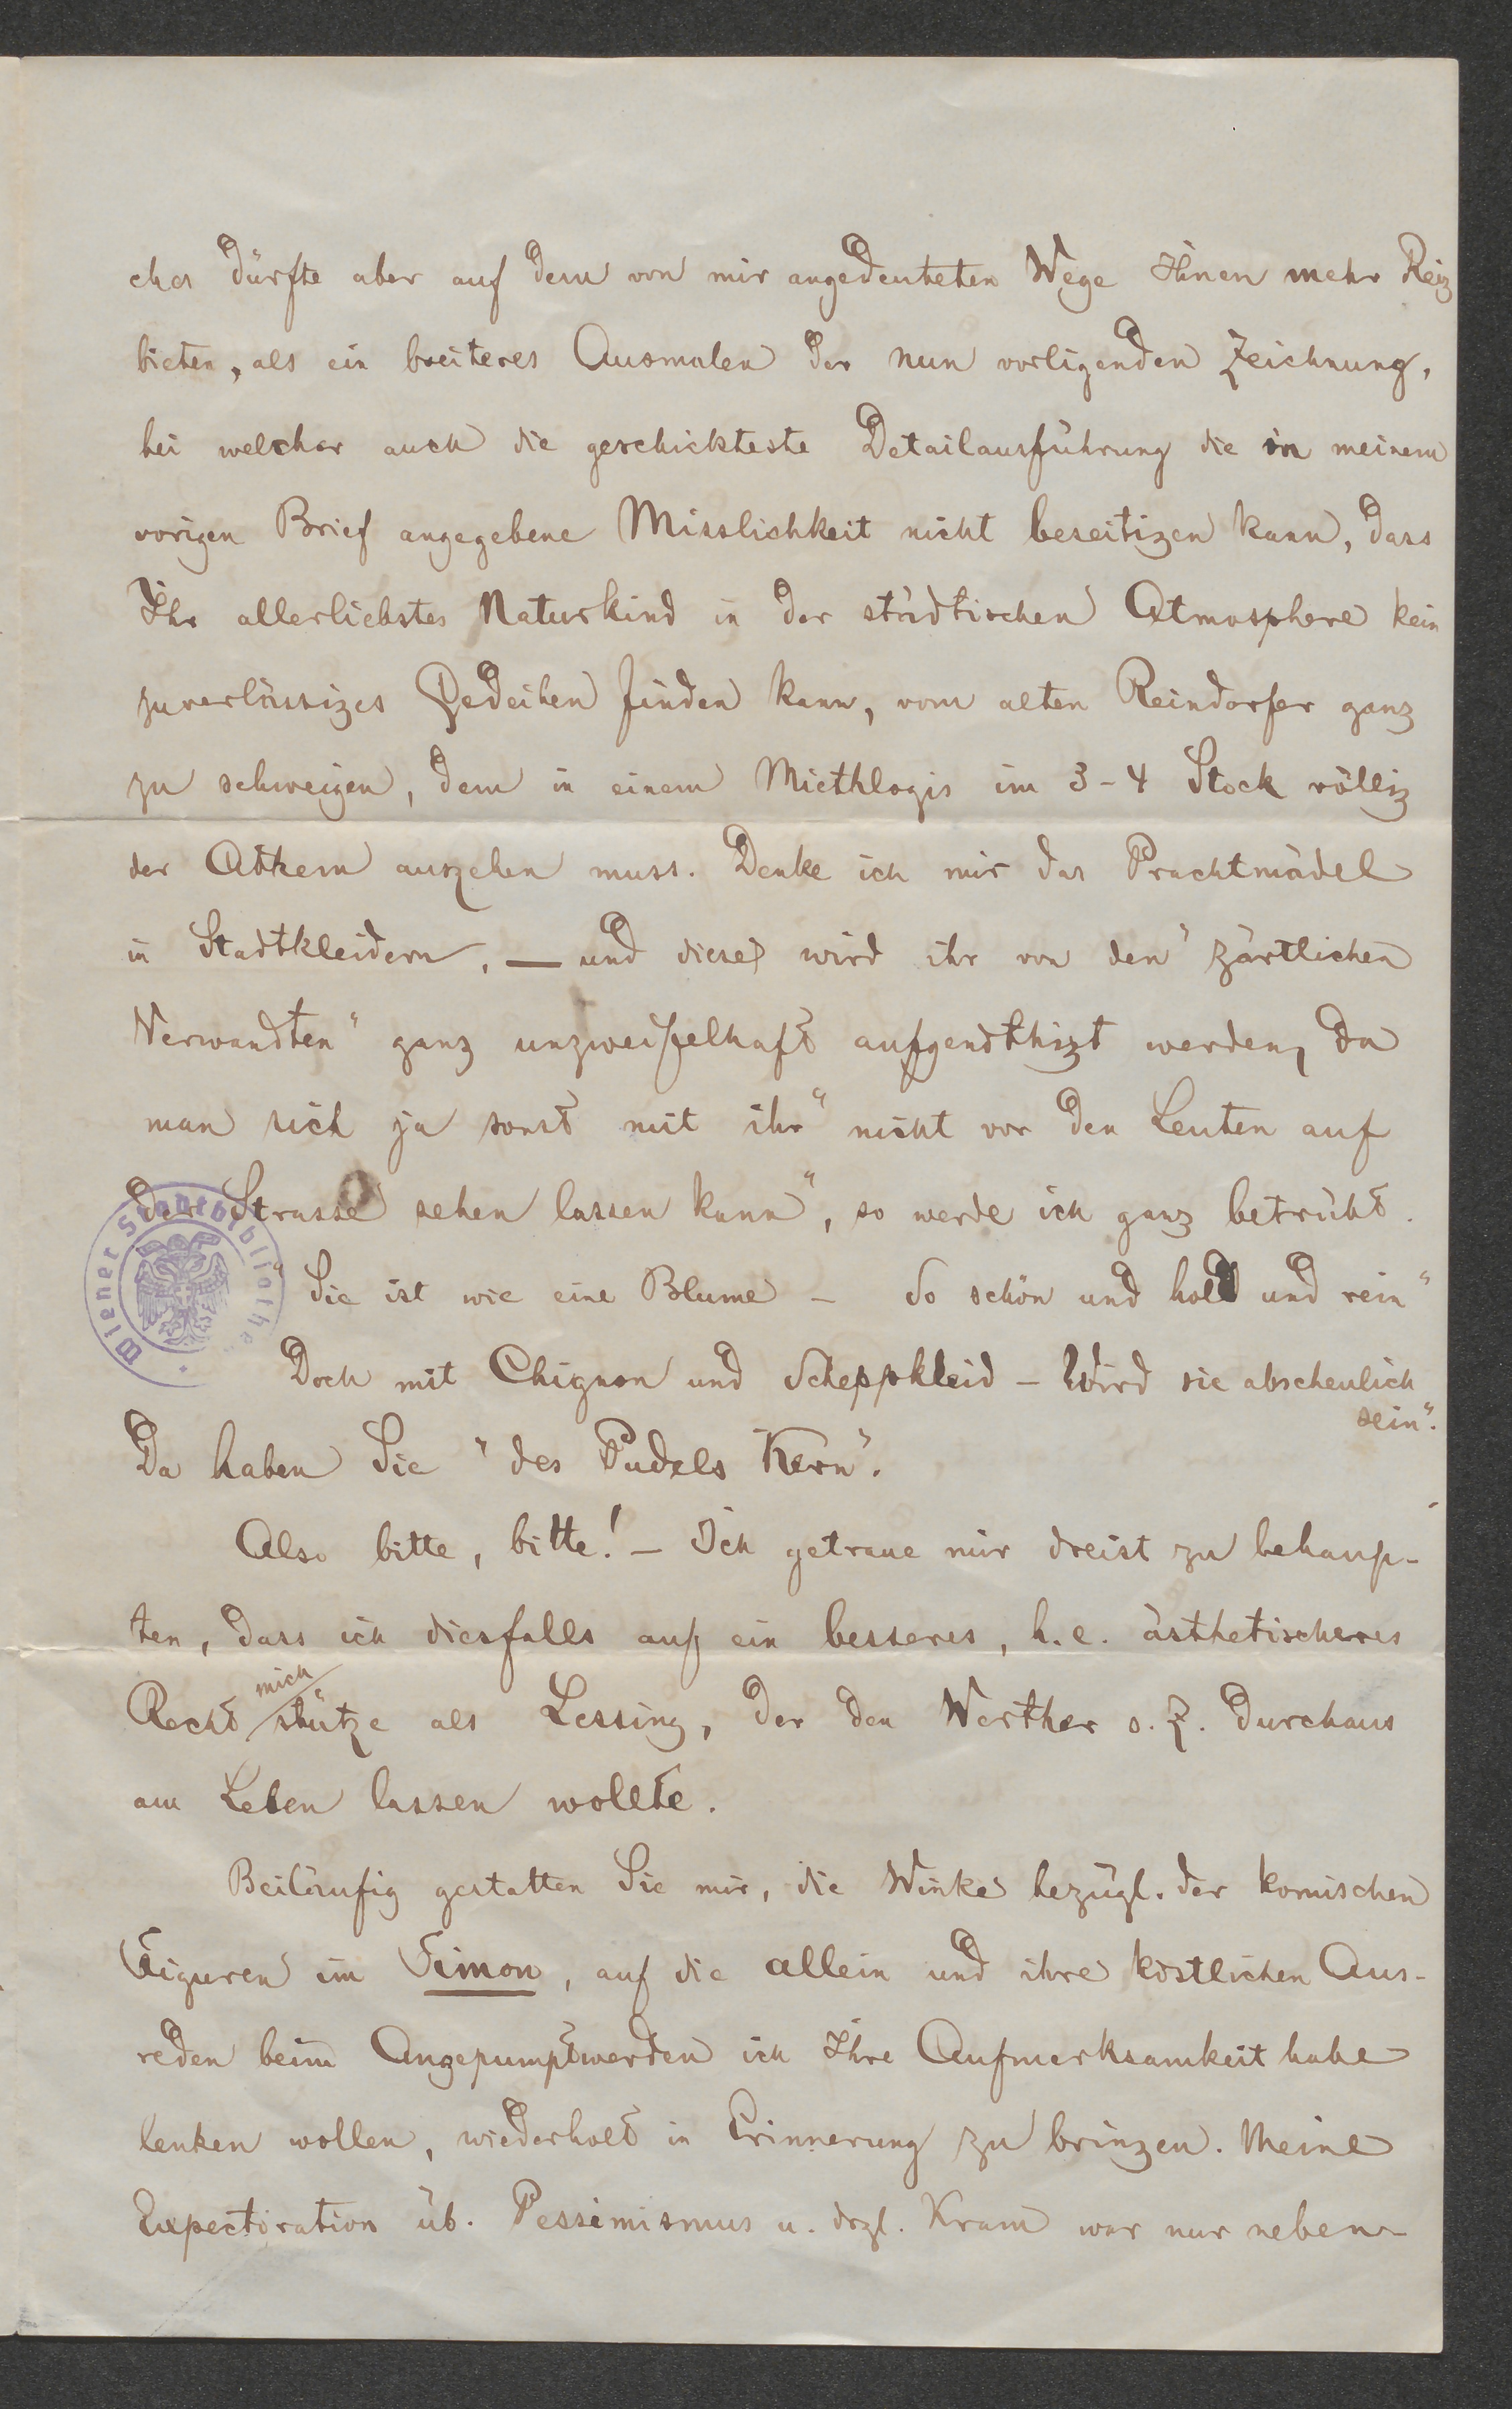 ches dürfte aber auf dem von mir angedeuteten Wege Ihnen mehr Reiz
bieten, als ein breiteres Ausmalen der nun vorligenden Zeichnung,
bei welcher auch die geschickteste Detailausführung die in meinem
vorigen Brief angegebene Misslichkeit nicht beseitigen kann, dass
Ihr allerliebstes Naturkind in der städtischen Atmosphere kein
zuverlässiges Gedeihen finden kann, vom alten Reindorfer ganz
zu schweigen, dem in einem Miethlogis im 3-4 Stock völlig
der Athem ausgehen muss. Denke ich mir das Prachtmädel
in Stadtkleidern, — und diese wird ihr von den "zärtlichen
Verwandten" ganz unzweifelhaft aufgenöthigt werden, da
man sich ja sonst mit ihr "nicht vor den Leuten auf
der Strasse sehen lassen kann", so werde ich ganz betrübt.
"Sie ist wie eine Blume – So schön und hold und rein"
Doch mit Chignon und Scheppkleid – Wird sie abscheulich
sein".
Da haben Sie "des Pudels Kern".
Also bitte, bitte! – Ich getraue mir dreist zu behaup-
ten, dass ich diesfalls auf ein besseres, h.e. ästhetischeres
Recht mich stütze als Lessing, der den Werther s. Z. durchaus
am Leben lassen wollte.
Beiläufig gestatten Sie mir, die Winke bezügl. der komischen
Figuren im Timon, auf die allein und ihre köstlichen Aus-
reden beim Angepumptwerden ich Ihre Aufmerksamkeit habe
lenken wollen, wiederholt in Erinnerung zu bringen. Meine
Expectoration üb. Pessimismus u. drgl. Kram war nur neben-
Wiener Stadtbibliothek